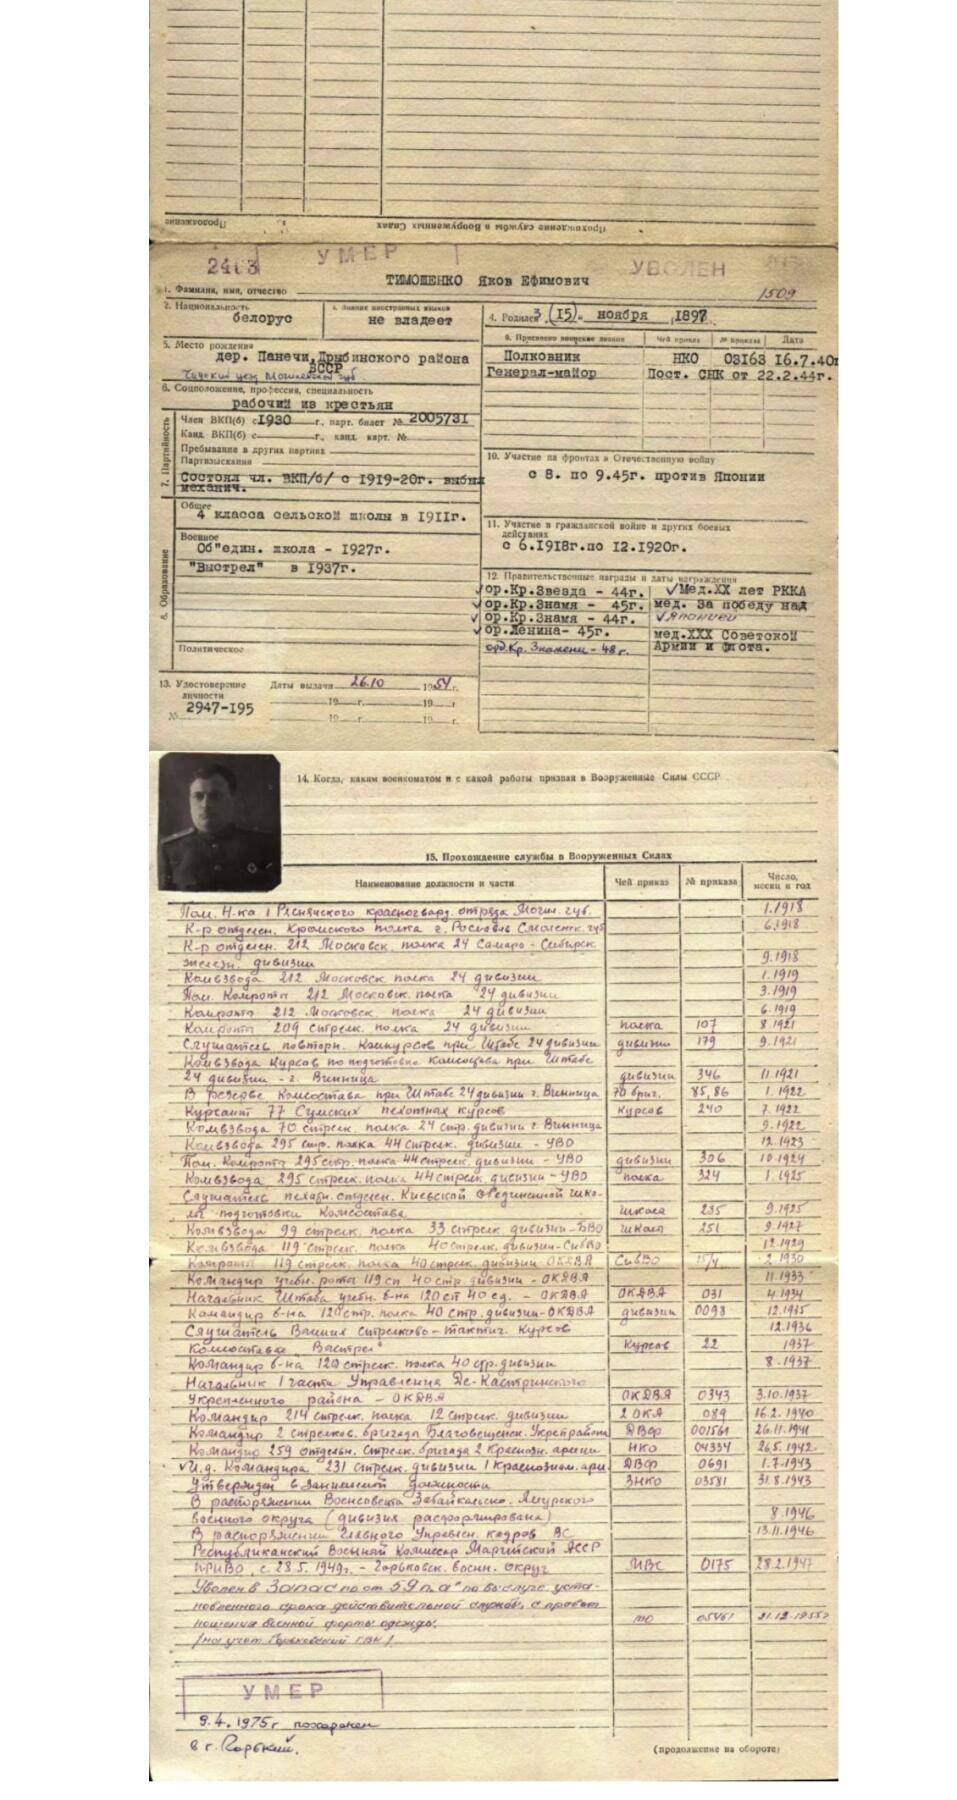 Продолжение
Прохождение службы в Вооруженных Силах
2403 УМЕР УВОЛЕН
1. Фамилия, имя, отчество ТИМОШЕНКО Яков Ефимович
1509
2. Национальность белорус
3. Знание иностранных языков не владеет
4. Родился 3 (15) ноября 1897
5. Место рождения дер. Панечи, Дрыбинского района
БССР
уезд Могилевской губ.
6. Соцположение, профессия, специальность
рабочий из крестьян
7. Партийность
Член ВКП(б) с 1930 г., парт. билет № 2005731
Канд. ВКП(б) с г., канд. карт. №
Пребывание в других партиях
Партвзыскания
Состоял чл. ВКП/б/ с 1919-20г. выбыл
механич.
8. Образование
Общее
4 класса сельской школы в 1911г.
Военное
Об"един. школа - 1927г.
"Выстрел" в 1937г.
Политическое
13. Удостоверение личности
№ 2947-195
Даты выдачи 26.10 1954 г.
19 г. 19 г.
19 г. 19 г.
9. Присвоено воинское звание Чей приказ № приказа Дата
Полковник НКО 03163 16.7.40г
Генерал-майор Пост. СНК от 22.2.44г.
10. Участие на фронтах в Отечественную войну
с 8. по 9.45г. против Японии
11. Участие в гражданской войне и других боевых
действиях
с 6.1918г.по 12.1920г.
12. Правительственные награды и даты награждения
ор.Кр.Звезда - 44г. Мед.XX лет РККА
ор.Кр.Знамя - 45г. мед. За победу над
ор.Кр.Знамя - 44г. Японией
ор.Ленина- 45г. мед.XXX Советской
орд.Кр. Знамени - 48г. Армии и флота.
14. Когда, каким военкоматом и с какой работы призван в Вооруженные Силы СССР
15. Прохождение службы в Вооруженных Силах
Наименование должности и части Чей приказ № приказа Число, месяц и год
Пом. Н-ка 1 Ряснянского красногвард. отряда Могил. губ. 1.1918
К-р отделен. Кромского полка г. Рославль Смоленск. губ 6.1918
К-р отделен. 212 Московск. полка 24 Самаро-Сибирск.
железн. дивизии 9.1918
Комвзвода 212 Московск полка 24 дивизии 1.1919
Пом. Комроты 212 Московск. полка 24 дивизии 3.1919
Комроты 212 Московск. полка 24 дивизии 6.1919
Комроты 209 стрелк. полка 24 дивизии полка 107 8.1921
Слушатель повторн. Комкурсов при Штабе 24 дивизии дивизии 179 9.1921
Комвзвода Курсов по подготовке Комсостава при Штабе
24 дивизии - г. Винница дивизии 346 11.1921
В резерве Комсостава при Штабе 24 дивизии г. Винница 70 бриг. 85,86 1.1922
Курсант 77 Сумских пехотных курсов Курсов 240 7.1922
Комвзвода 70 стрелк. полка 24 стр. дивизии г. Винница 9.1922
Комвзвода 295 стр. полка 44 стрелк. дивизии - УВО 12.1923
Пом. Комроты 295 стр. полка 44 стрелк. дивизии - УВО дивизии 306 10.1924
Комвзвода 295 стрелк. полка 44 стрелк. дивизии - УВО полка 324 1.1925
Слушатель пехотн. отделен. Киевской объединенной шко-
лы подготовки Комсостава Школа 235 9.1925
Комвзвода 99 стрелк. полка 33 стрелк дивизии-БВО школы 251 9.1927
Комвзвода 119 стрелк. полка 40 стрелк. дивизии-СибВО 12.1929
Комроты 119 стрелк. полка 40 стрелк. дивизии ОКДВА СибВО 15/4 2.1930
Командир учебн. роты 119 сп 40 стр. дивизии - ОКДВА 11.1933
Начальник Штаба учебн. б-на 120 сп 40 сд. - ОКДВА ОКДВА 031 4.1934
Командир б-на 120 стр. полка 40 стр. дивизии-ОКДВА дивизии 0098 12.1935
Слушатель Высших стрелково-тактич. Курсов 12.1936
Комсостава "Выстрел" Курсов 22 1937
Командир б-на 120 стрелк. полка 40 стр. дивизии 8.1937
Начальник 1 части Управления Де-Кастринского
Укрепленного района - ОКДВА ОКДВА 0343 3.10.1937
Командир 214 стрелк. полка 12 стрелк. дивизии 2 ОКА 089 16.2.1940
Командир 2 стрелков. бригады Благовещенск. Укрепрайона ДВФ 001561 26.11.1941
Командир 259 отдельн. стрелк. бригада 2 Краснозн. армии НКО 04334 26.5.1942.
И.д. Командира 231 стрелк. дивизии 1 Краснознам. арм ДВФ 0691 1.7.1943
Утвержден в занимаемой должности ЗНКО 03581 31.8.1943
В распоряжении Военсовета Забайкальско-Амурского
военного округа (дивизия расформирована) 8.1946
В распоряжении Главного Управлен. кадров ВС 13.11.1946
Республиканский Военный Комиссар Марийской АССР
ПРИВО, с 28.5.1949г. - Горьковск. воен. округ МВС 0175 28.2.1947
Уволен в Запас по ст 59 п."а" по выслуге уста-
новленного срока действительной службы, с правом
ношения военной формы одежды. МО 05461 21.12.1955г
/на учет Горьковский ГВК/
УМЕР
9.4.1975г похоронен
в г. Горький.
(продолжение на обороте)